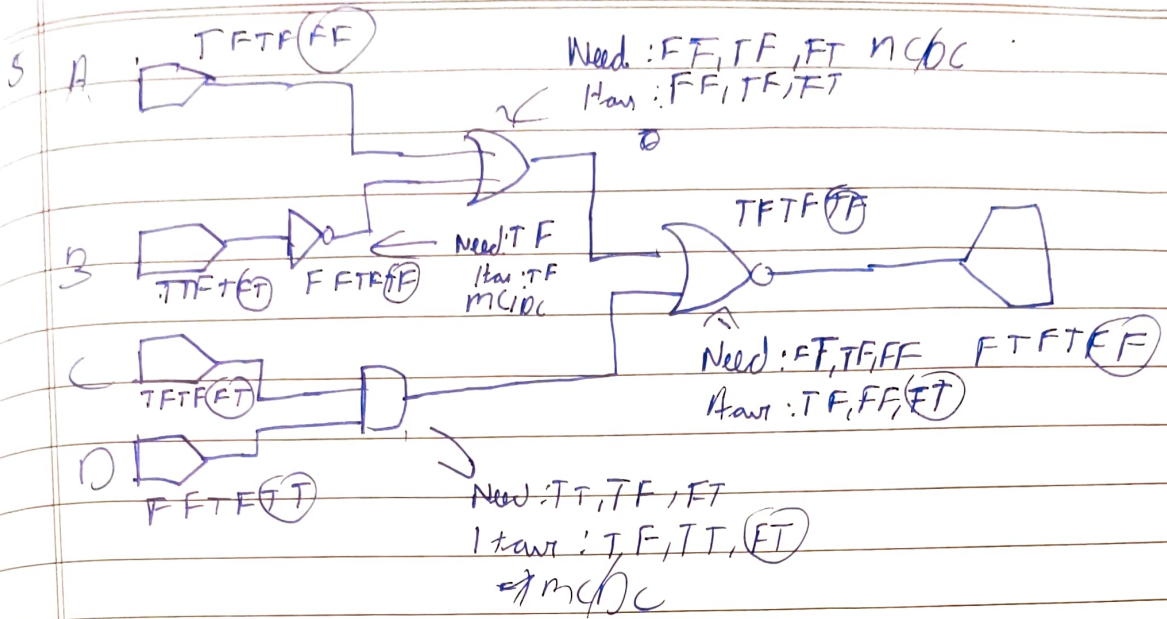 TFTF FF
Need : FF, TF, FT mc/dc
Have : FF, TF, FT
A
B
TTFT FT
F FTF TF
Need: TF
Have : TF
MC/DC
TFTF TF
Need : FT, TF, FF
Have : TF, FF, FT
FTFT FF
C
TFTF FT
D
FFTF TT
Need : TT, TF, FT
Have : TF, TT, FT
mc/Dc